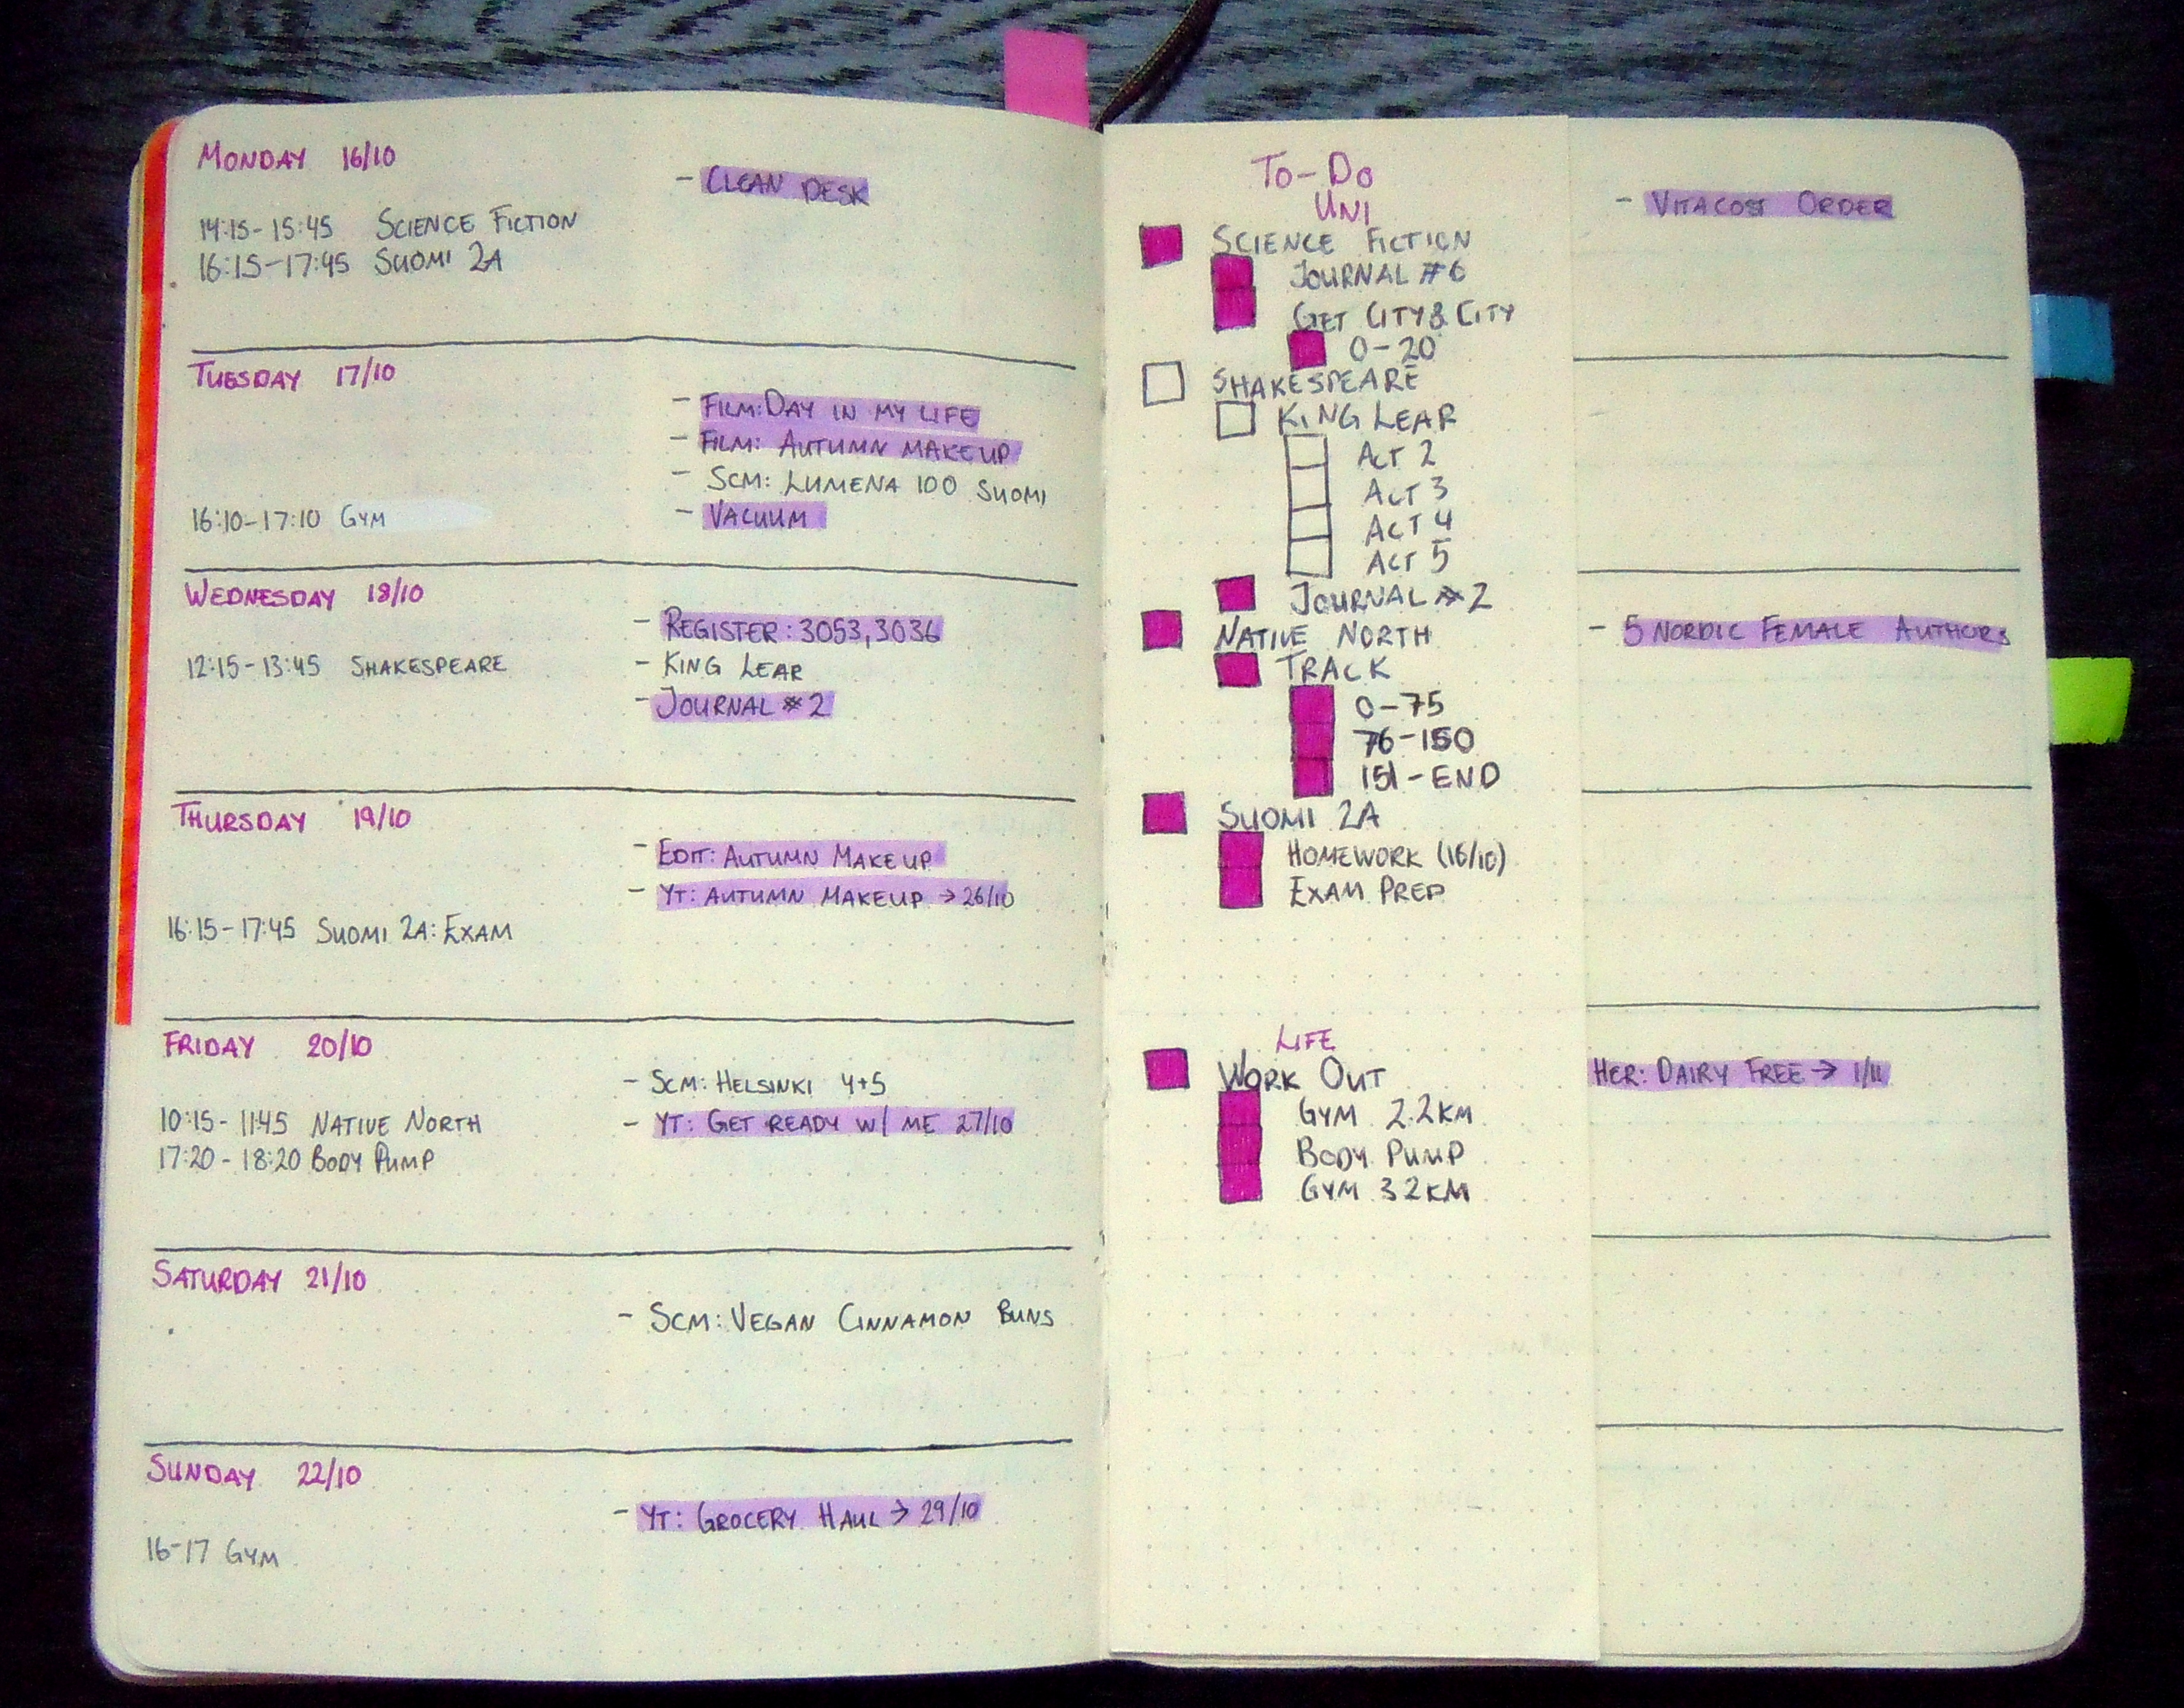 MONDAY 16/10
- CLEAN DESK
14:15-15:45 SCIENCE FICTION
16:15-17:45 SUOMI 2A
TUESDAY 17/10
- FILM: DAY IN MY LIFE
- FILM: AUTUMN MAKEUP
- SCM: LUMENA 100 SUOMI
16:10-17:10 GYM
- VACUUM
WEDNESDAY 18/10
- REGISTER: 3053, 3036
12:15-13:45 SHAKESPEARE
- KING LEAR
- JOURNAL #2
THURSDAY 19/10
- EDIT: AUTUMN MAKEUP
- YT: AUTUMN MAKEUP → 26/10
16:15-17:45 SUOMI 2A: EXAM
FRIDAY 20/10
- SCM: HELSINKI 4+5
10:15-11:45 NATIVE NORTH
- YT: GET READY W/ ME 27/10
17:20-18:20 BODY PUMP
SATURDAY 21/10
- SCM: VEGAN CINNAMON BUNS
SUNDAY 22/10
- YT: GROCERY HAUL → 29/10
16-17 GYM
TO-DO
UNI
SCIENCE FICTION
JOURNAL #6
GET CITY & CITY
0-20
SHAKESPEARE
KING LEAR
ACT 2
ACT 3
ACT 4
ACT 5
JOURNAL #2
NATIVE NORTH
TRACK
0-75
76-150
151-END
SUOMI 2A
HOMEWORK (16/10)
EXAM PREP
LIFE
WORK OUT
GYM 2.2KM
BODY PUMP
GYM 3.2KM
- VITACOST ORDER
- 5 NORDIC FEMALE AUTHORS
HER: DAIRY FREE → 1/11